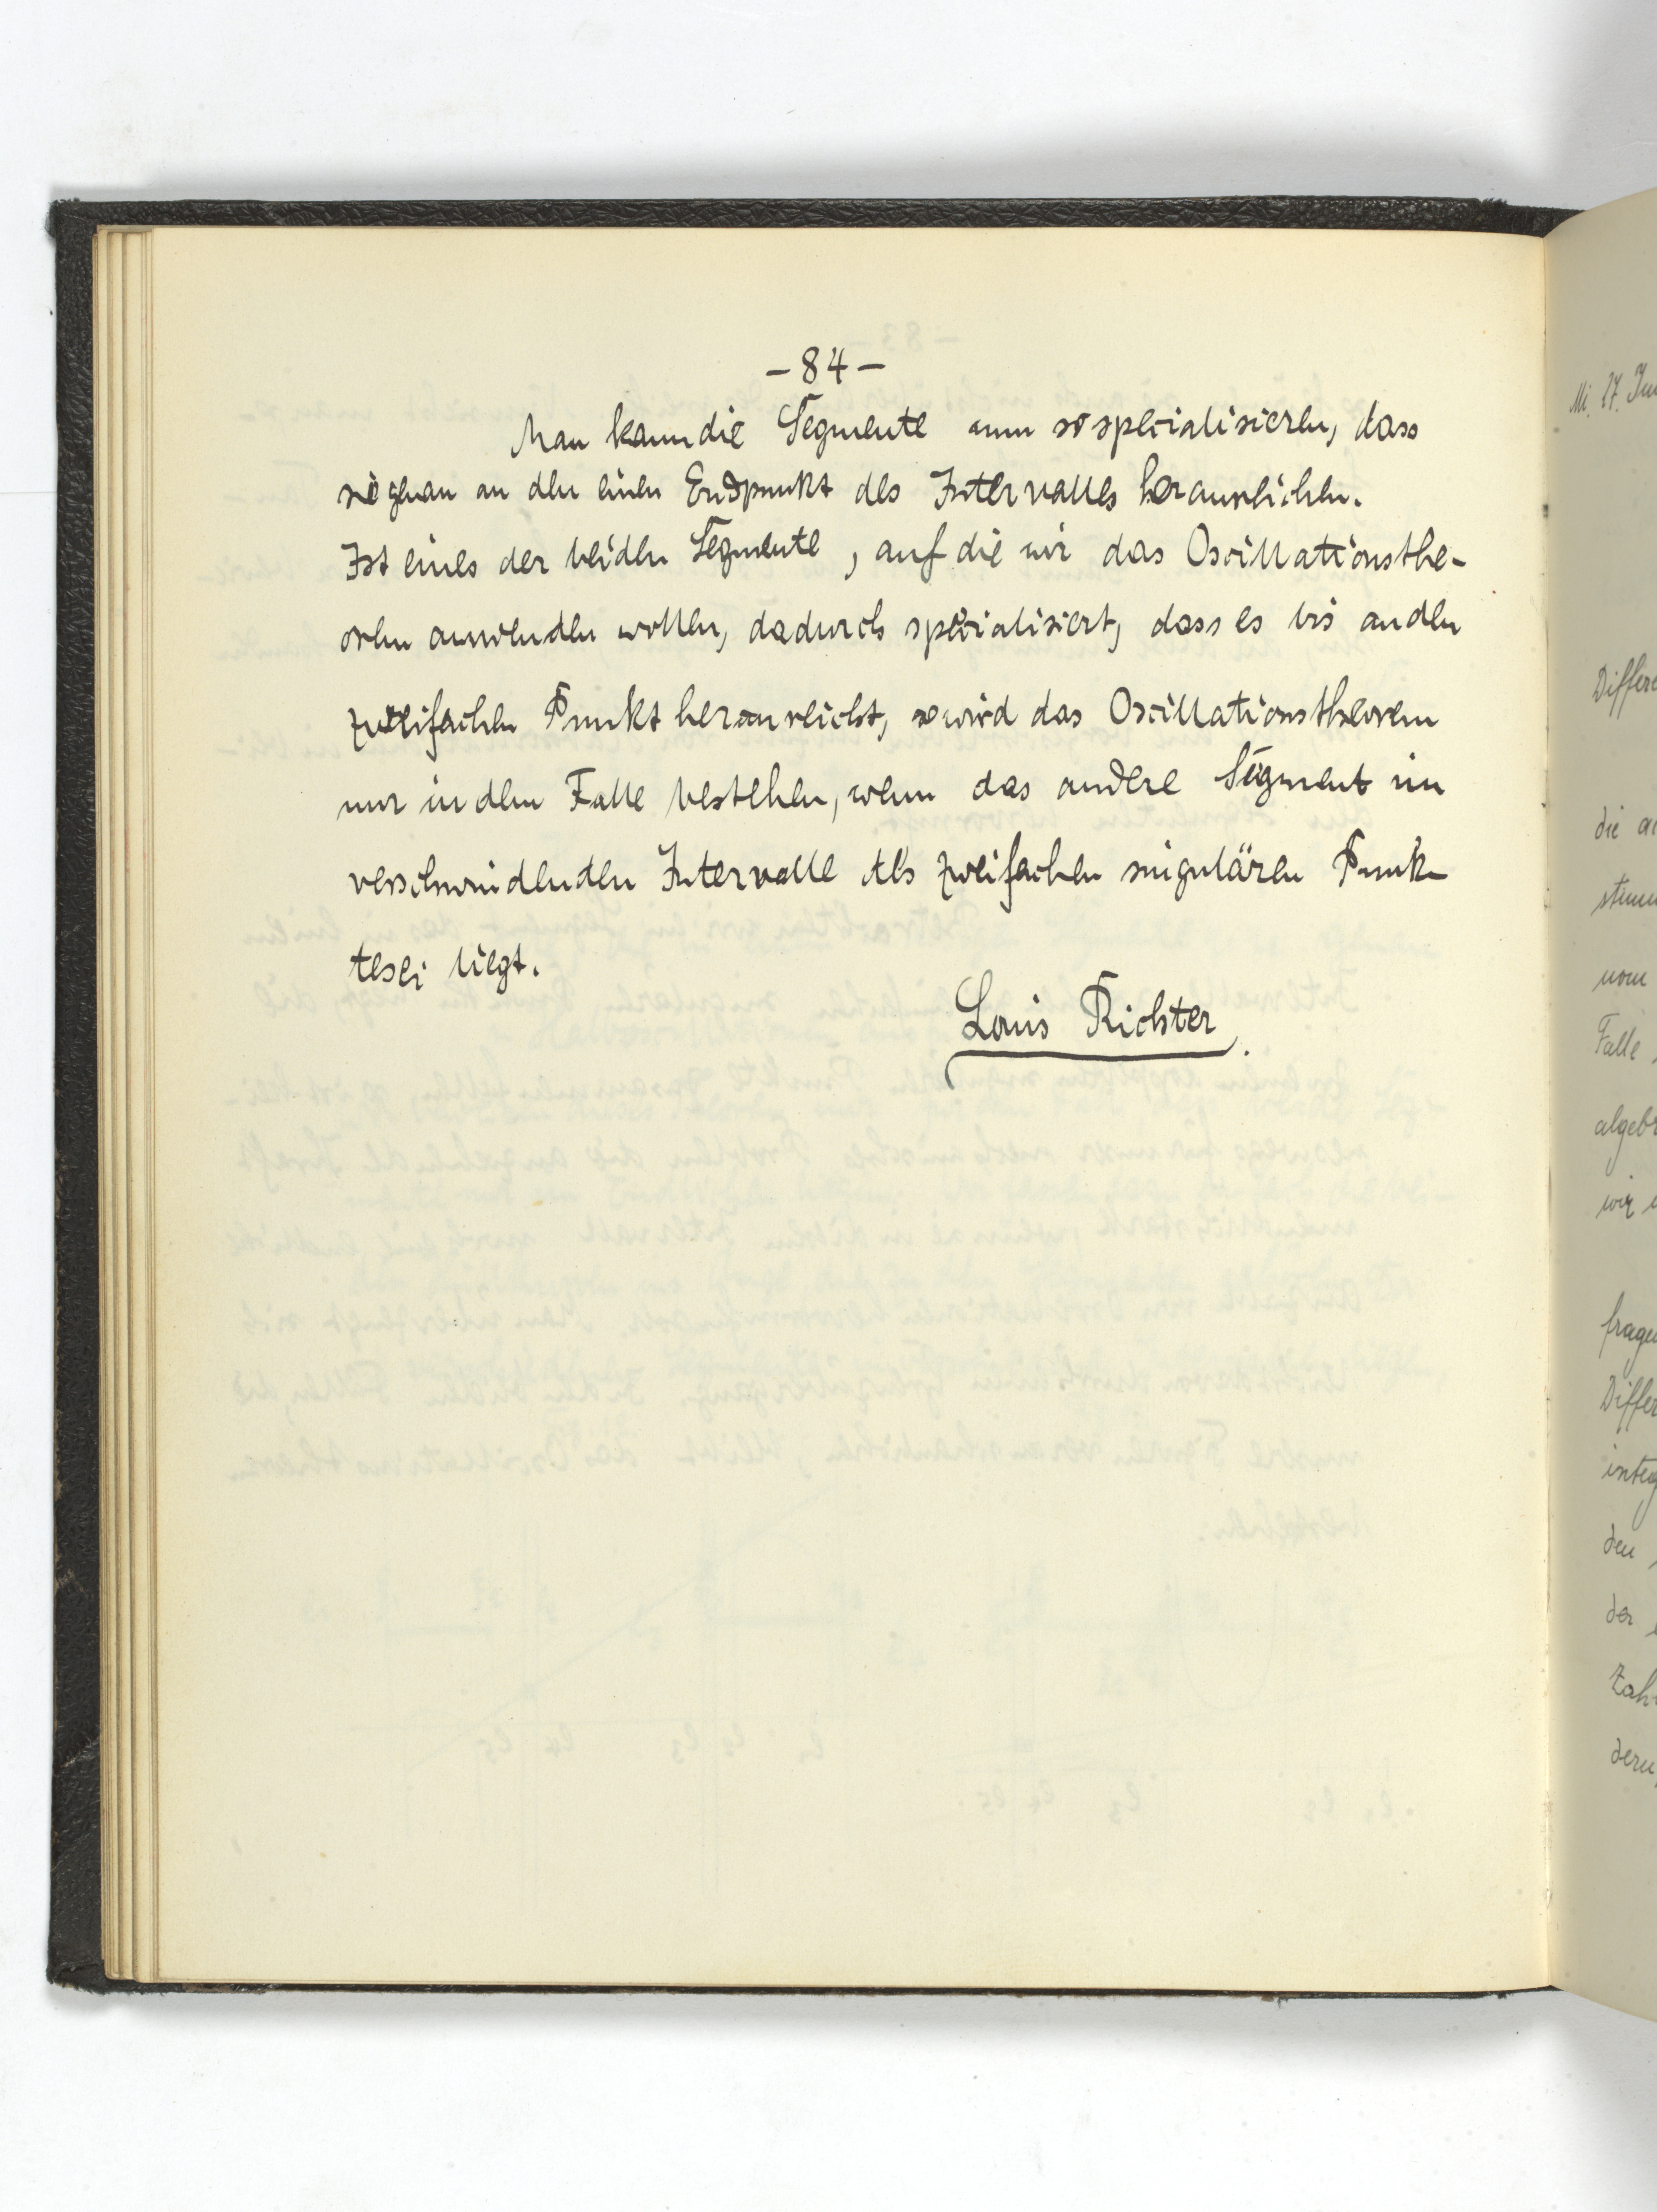 – 84 –
Man kann die Segmente nun so specialisieren, dass
sie genau an den einen Endpunkt des Intervalles heranreichen.
Ist eines der beiden Segmente, auf die wir das Oscillationsthe-
orem anwenden wollen, dadurch specialisiert, dass es bis an den
zweifachen Punkt heranreicht, so wird das Oscillationstheorem
nur in dem Falle bestehen, wenn das andere Segment im
verschwindenden Intervalle des zweifachen singulären Punk
tes ei liegt.
Louis Richter.
Mi. 17. Jun
Differe
die a
stimm
vom
Falle
algebr
wir
frage
Differ
integ
den
der
Zahl
deru